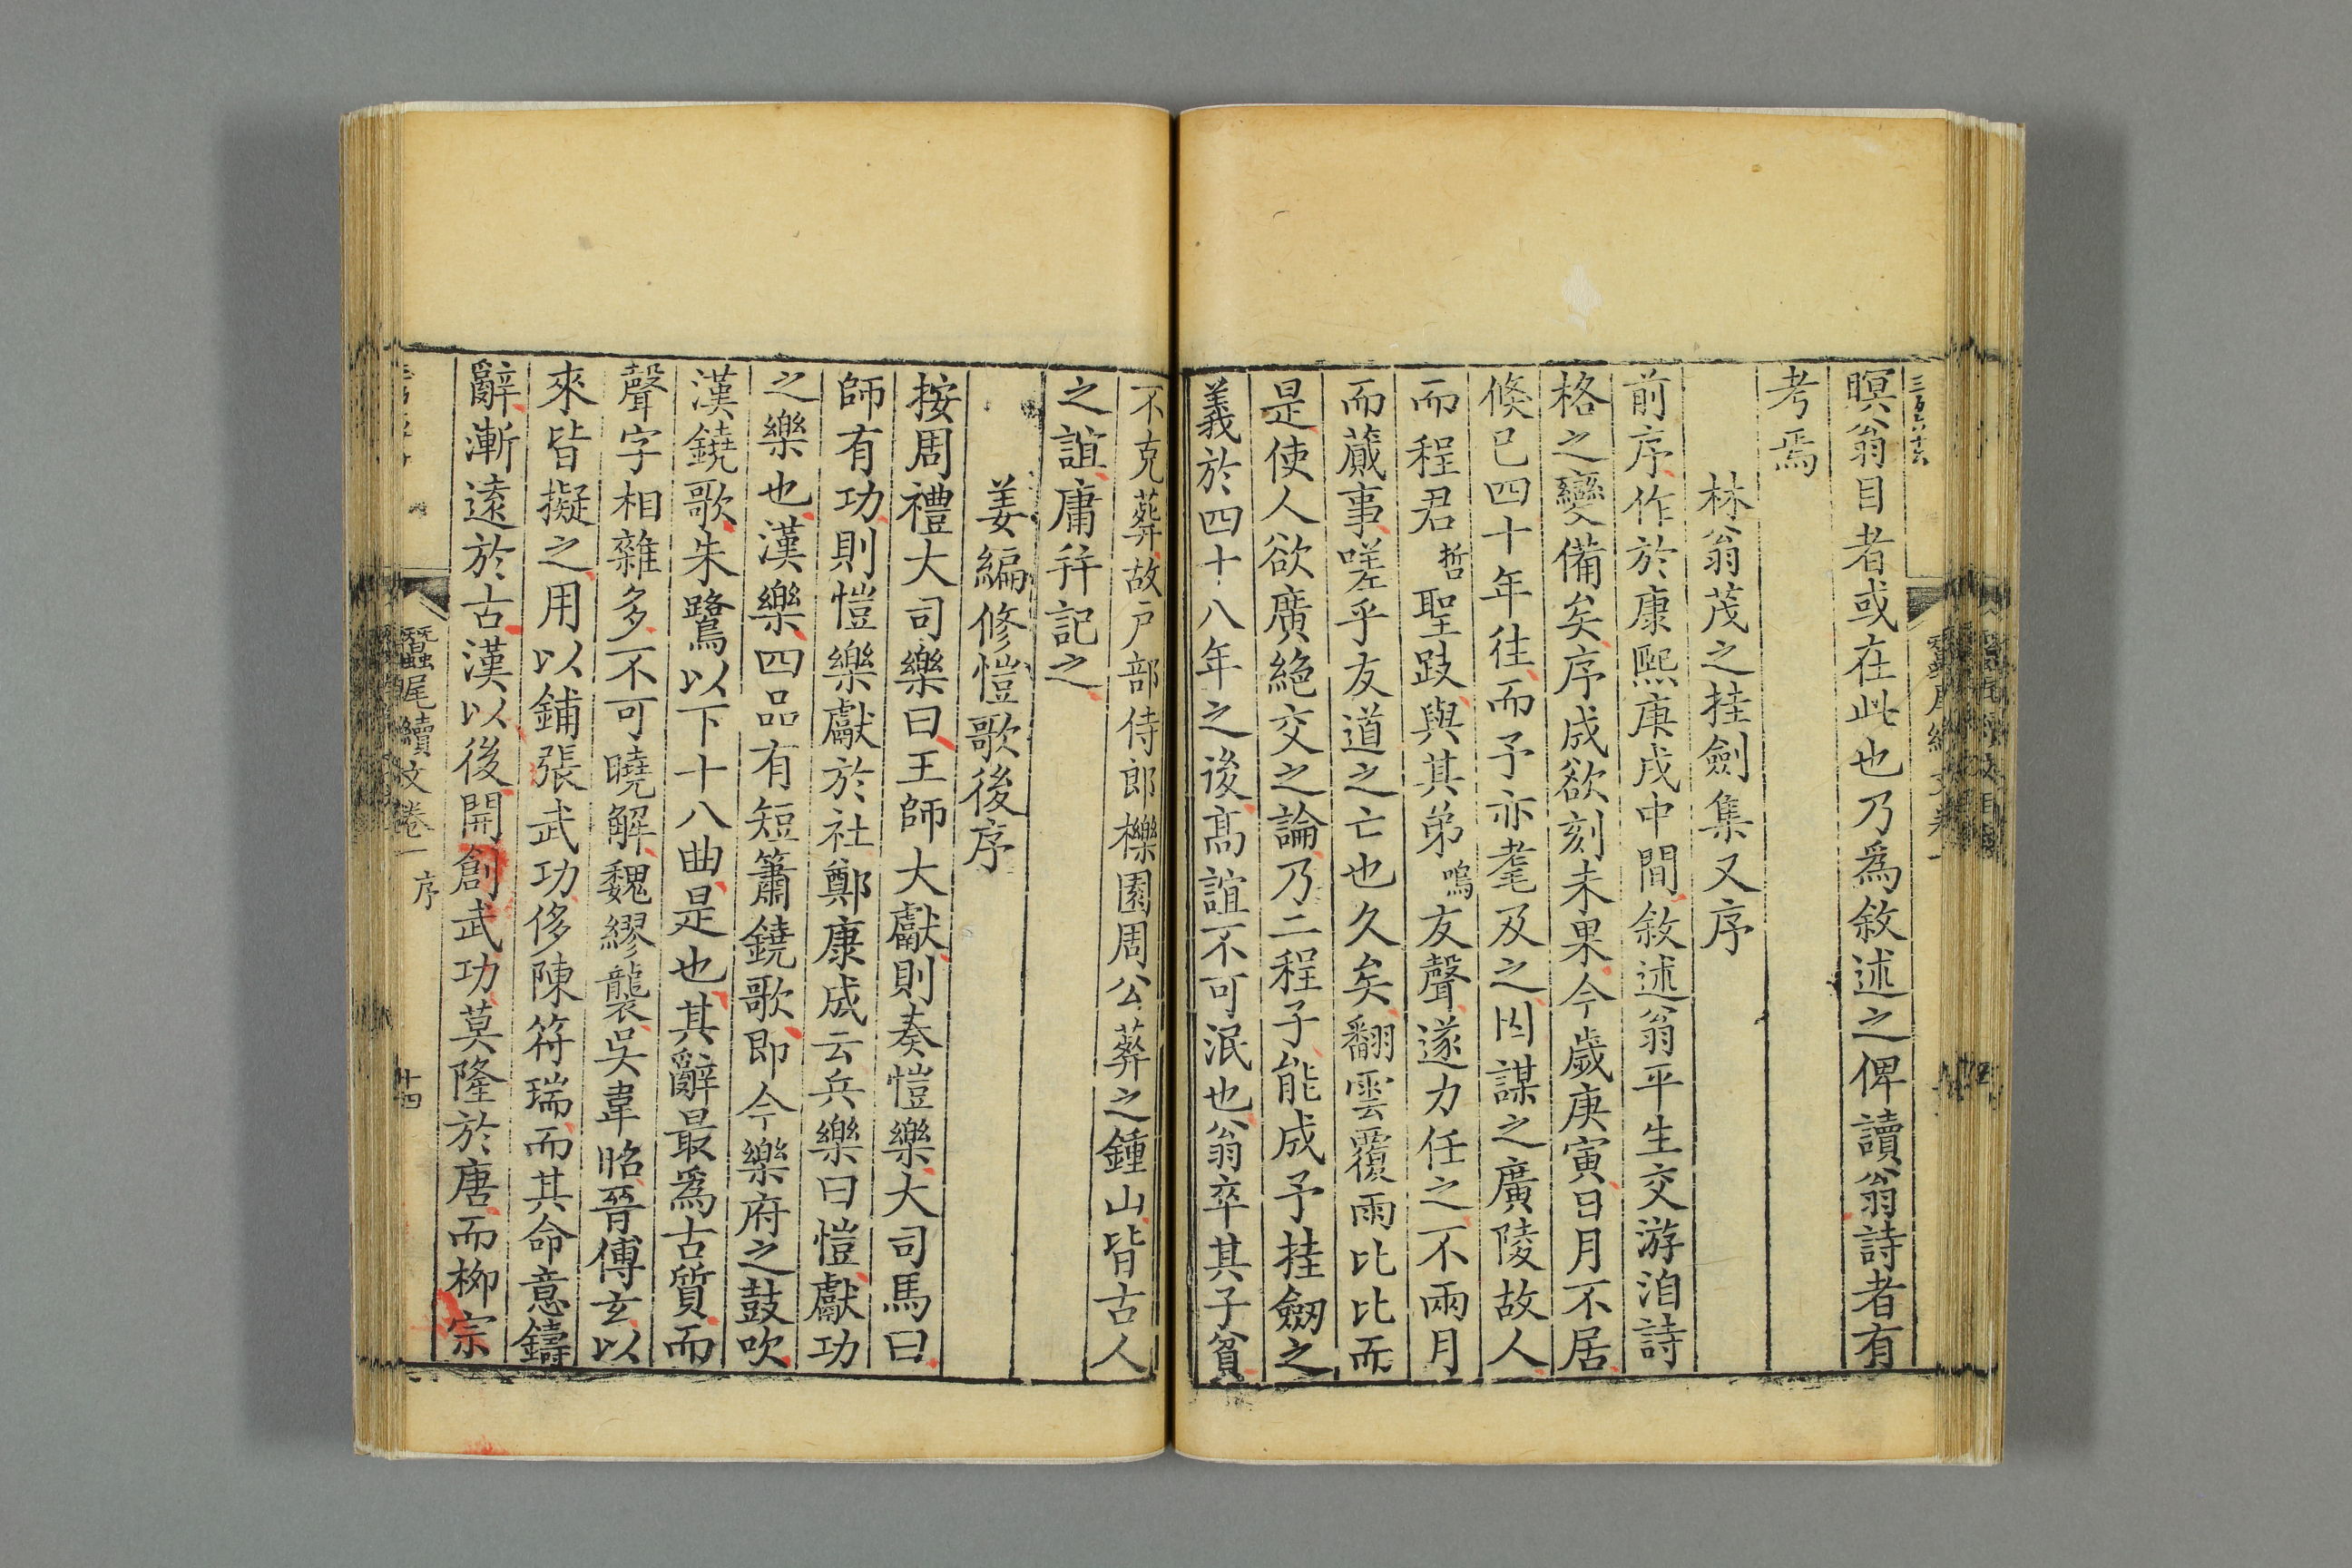 暝翁目者或在此也乃爲敘述之俾讀翁詩者有
考焉
林翁茂之挂劍集又序
前序作於康熙庚戌中間敘述翁平生交游洎詩
格之變備矣序成欲刻未果今歲庚寅日月不居
倐已四十年往而予亦耄及之因謀之廣陵故人
而程君哲聖跂與其弟鳴友聲遂力任之不兩月
而蕆事嗟乎友道之亡也久矣翻雲覆雨比比而
是使人欲廣絶交之論乃二程子能成予挂劒之
義於四十八年之後高誼不可泯也翁卒其子貧
不克葬故户部侍郎櫟園周公葬之鍾山皆古人
之誼庸并記之
姜編修愷歌後序
按周禮大司樂曰王師大獻則奏愷樂大司馬曰
師有功則愷樂獻於社鄭康成云兵樂曰愷獻功
之樂也漢樂四品有短簫鐃歌即今樂府之鼓吹
漢鐃歌朱鷺以下十八曲是也其辭最爲古質而
聲字相雜多不可曉解魏繆襲吳韋昭晉傅玄以
來皆擬之用以鋪張武功侈陳符瑞而其命意鑄
辭漸遠於古漢以後開創武功莫隆於唐而柳宗
蠶尾續文卷一 序 十四